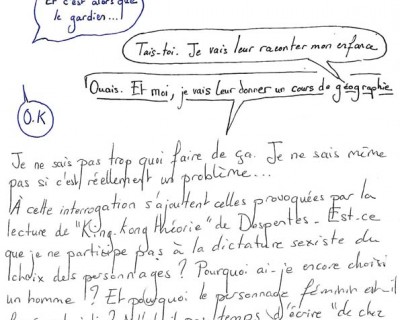 Et c'est alors que
le gardien...!
Tais-toi. Je vais leur raconter mon enfance
Ouais. Et moi, je vais leur donner un cours de géographie
O.K
Je ne sais pas trop quoi faire de ça. Je ne sais même
pas si c'est réellement un problème...
À cette interrogation s'ajoutent celles provoquées par la
lecture de "King-kong théorie" de Despentes. Est-ce
que je ne participe pas à la dictature sexiste du
choix des personnages ? Pourquoi ai-je encore choisi
un homme ? Et pourquoi le personnage féminin est-il
temps d'écrire "de chez